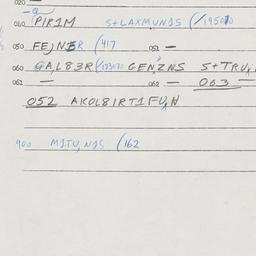 020 —
-a
040 (PIR1M S+LAXMUNDS (/195070
050 FEJNER (417 051 —
060 GAL83R (193070 GENZNS S+TRU
061 — 062 — 063 —
052 AKOL8IRT1FUN
900 M1TUNDS (162